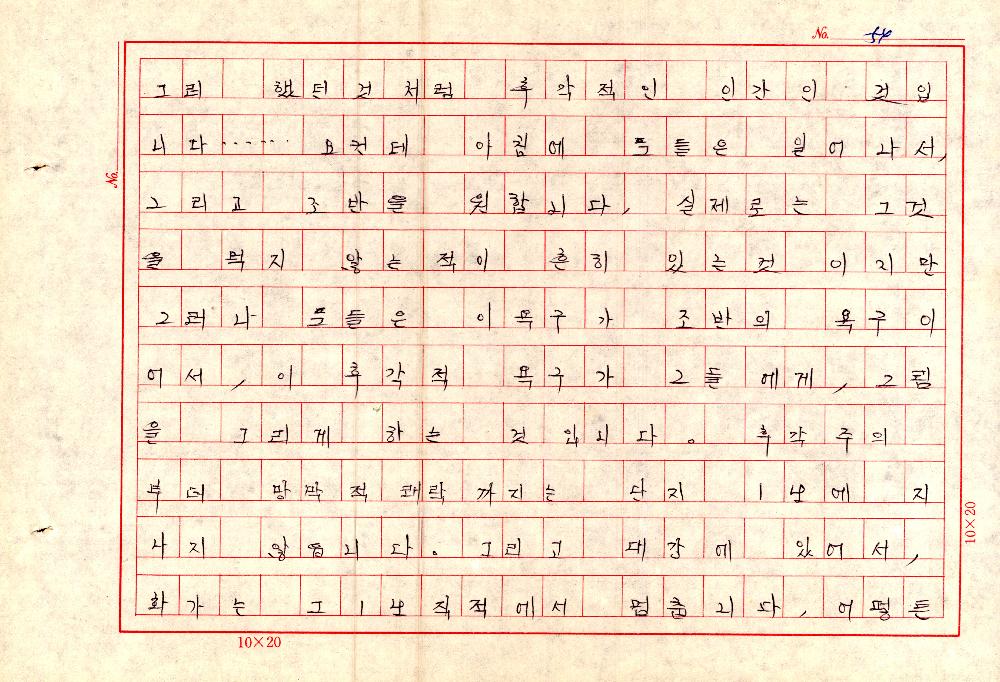 No. 54
그리 했던 것처럼 후각적인 인간인 것입
니다…… 요컨데 아침에 풋들은 일어나서,
그리고 조반을 원합니다, 실제로는 그것
을 먹지 않는적이 흔히 있는것 이지만
그러나 풋들은 이 욕구가 조반의 욕구이
어서, 이 후각적 욕구가 그들에게, 그림
을 그리게 하는 것 입니다。 후각주의
부터 망막적 쾌락 까지는 단지 1보에 지
나지 않습니다。 그리고 대강에 있어서,
화가는 그 1보직적에서 멈춥니다, 어떻든
No.
10×20
10×20